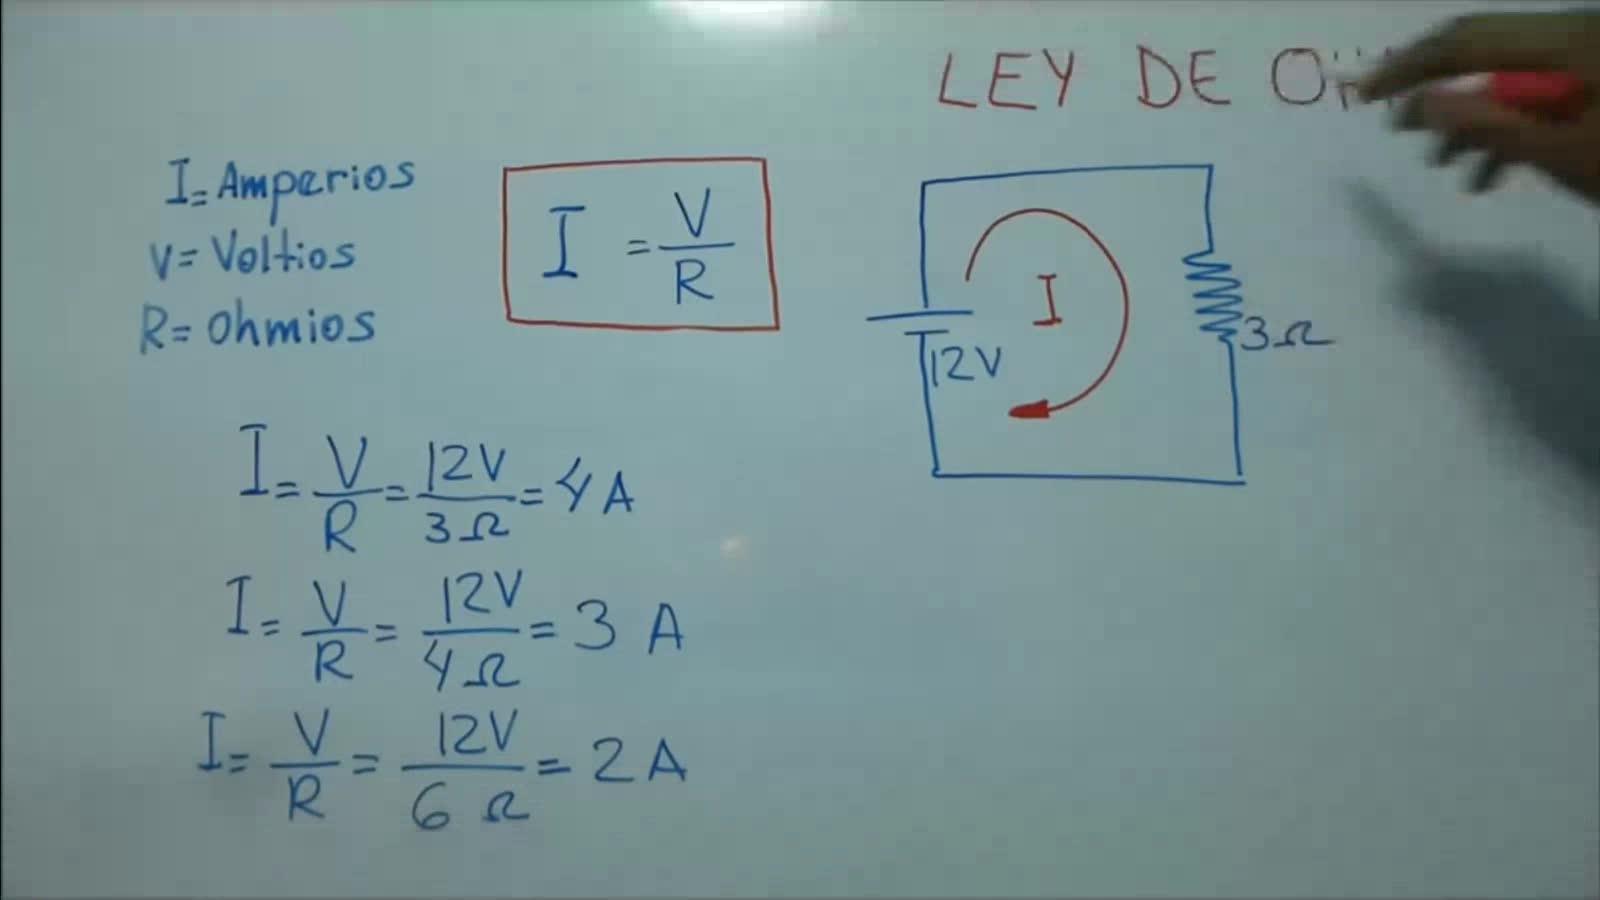 LEY DE
I = Amperios
V = Voltios
R = Ohmios
I = V/R
I
12V
3Ω
I = V/R = 12V/3Ω = 4A
I = V/R = 12V/4Ω = 3 A
I = V/R = 12V/6Ω = 2A